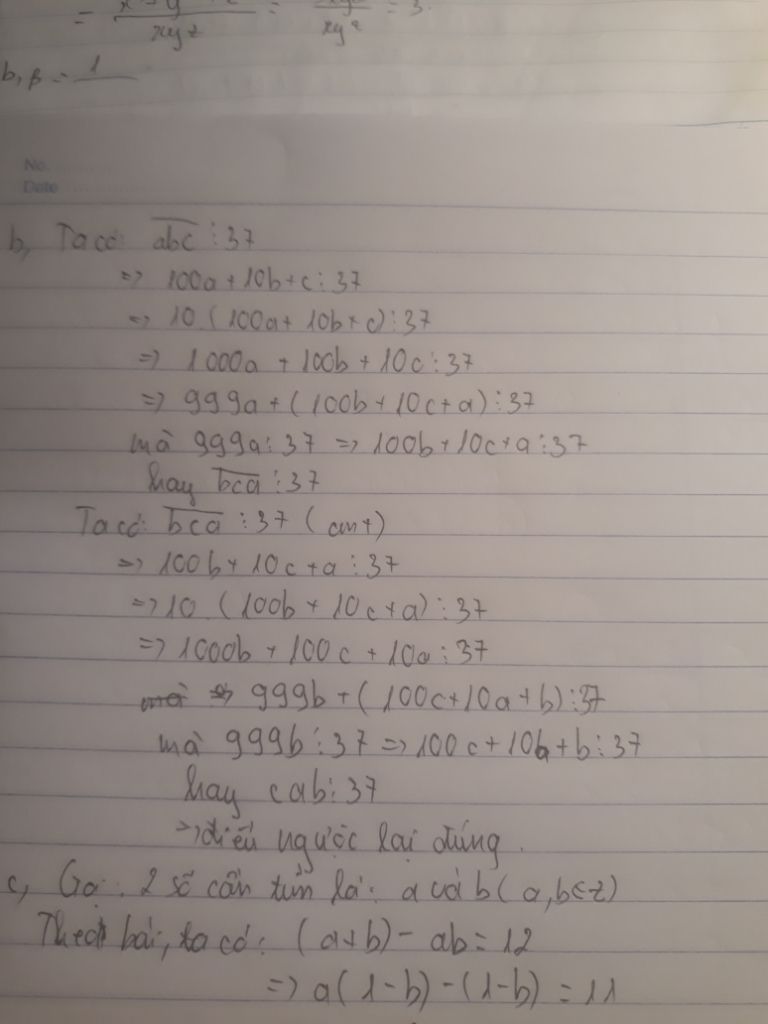 xyz xyz = 3
b, B = 1
No.
Date
b, Ta có: abc ⋮ 37
=> 100a + 10b + c ⋮ 37
=> 10 (100a + 10b + c) ⋮ 37
=> 1000a + 100b + 10c ⋮ 37
=> 999a + (100b + 10c + a) ⋮ 37
mà 999a ⋮ 37 => 100b + 10c + a ⋮ 37
hay bca ⋮ 37
Ta có: bca ⋮ 37 (cmt)
=> 100b + 10c + a ⋮ 37
=> 10 (100b + 10c + a) ⋮ 37
=> 1000b + 100c + 10a ⋮ 37
=> 999b + (100c + 10a + b) ⋮ 37
mà 999b ⋮ 37 => 100c + 10a + b ⋮ 37
hay cab ⋮ 37
=> điều ngược lại đúng.
c, Gọi 2 số cần tìm là: a và b (a, b ∈ z)
Theo bài, ta có: (a + b) - ab = 12
=> a(1 - b) - (1 - b) = 11